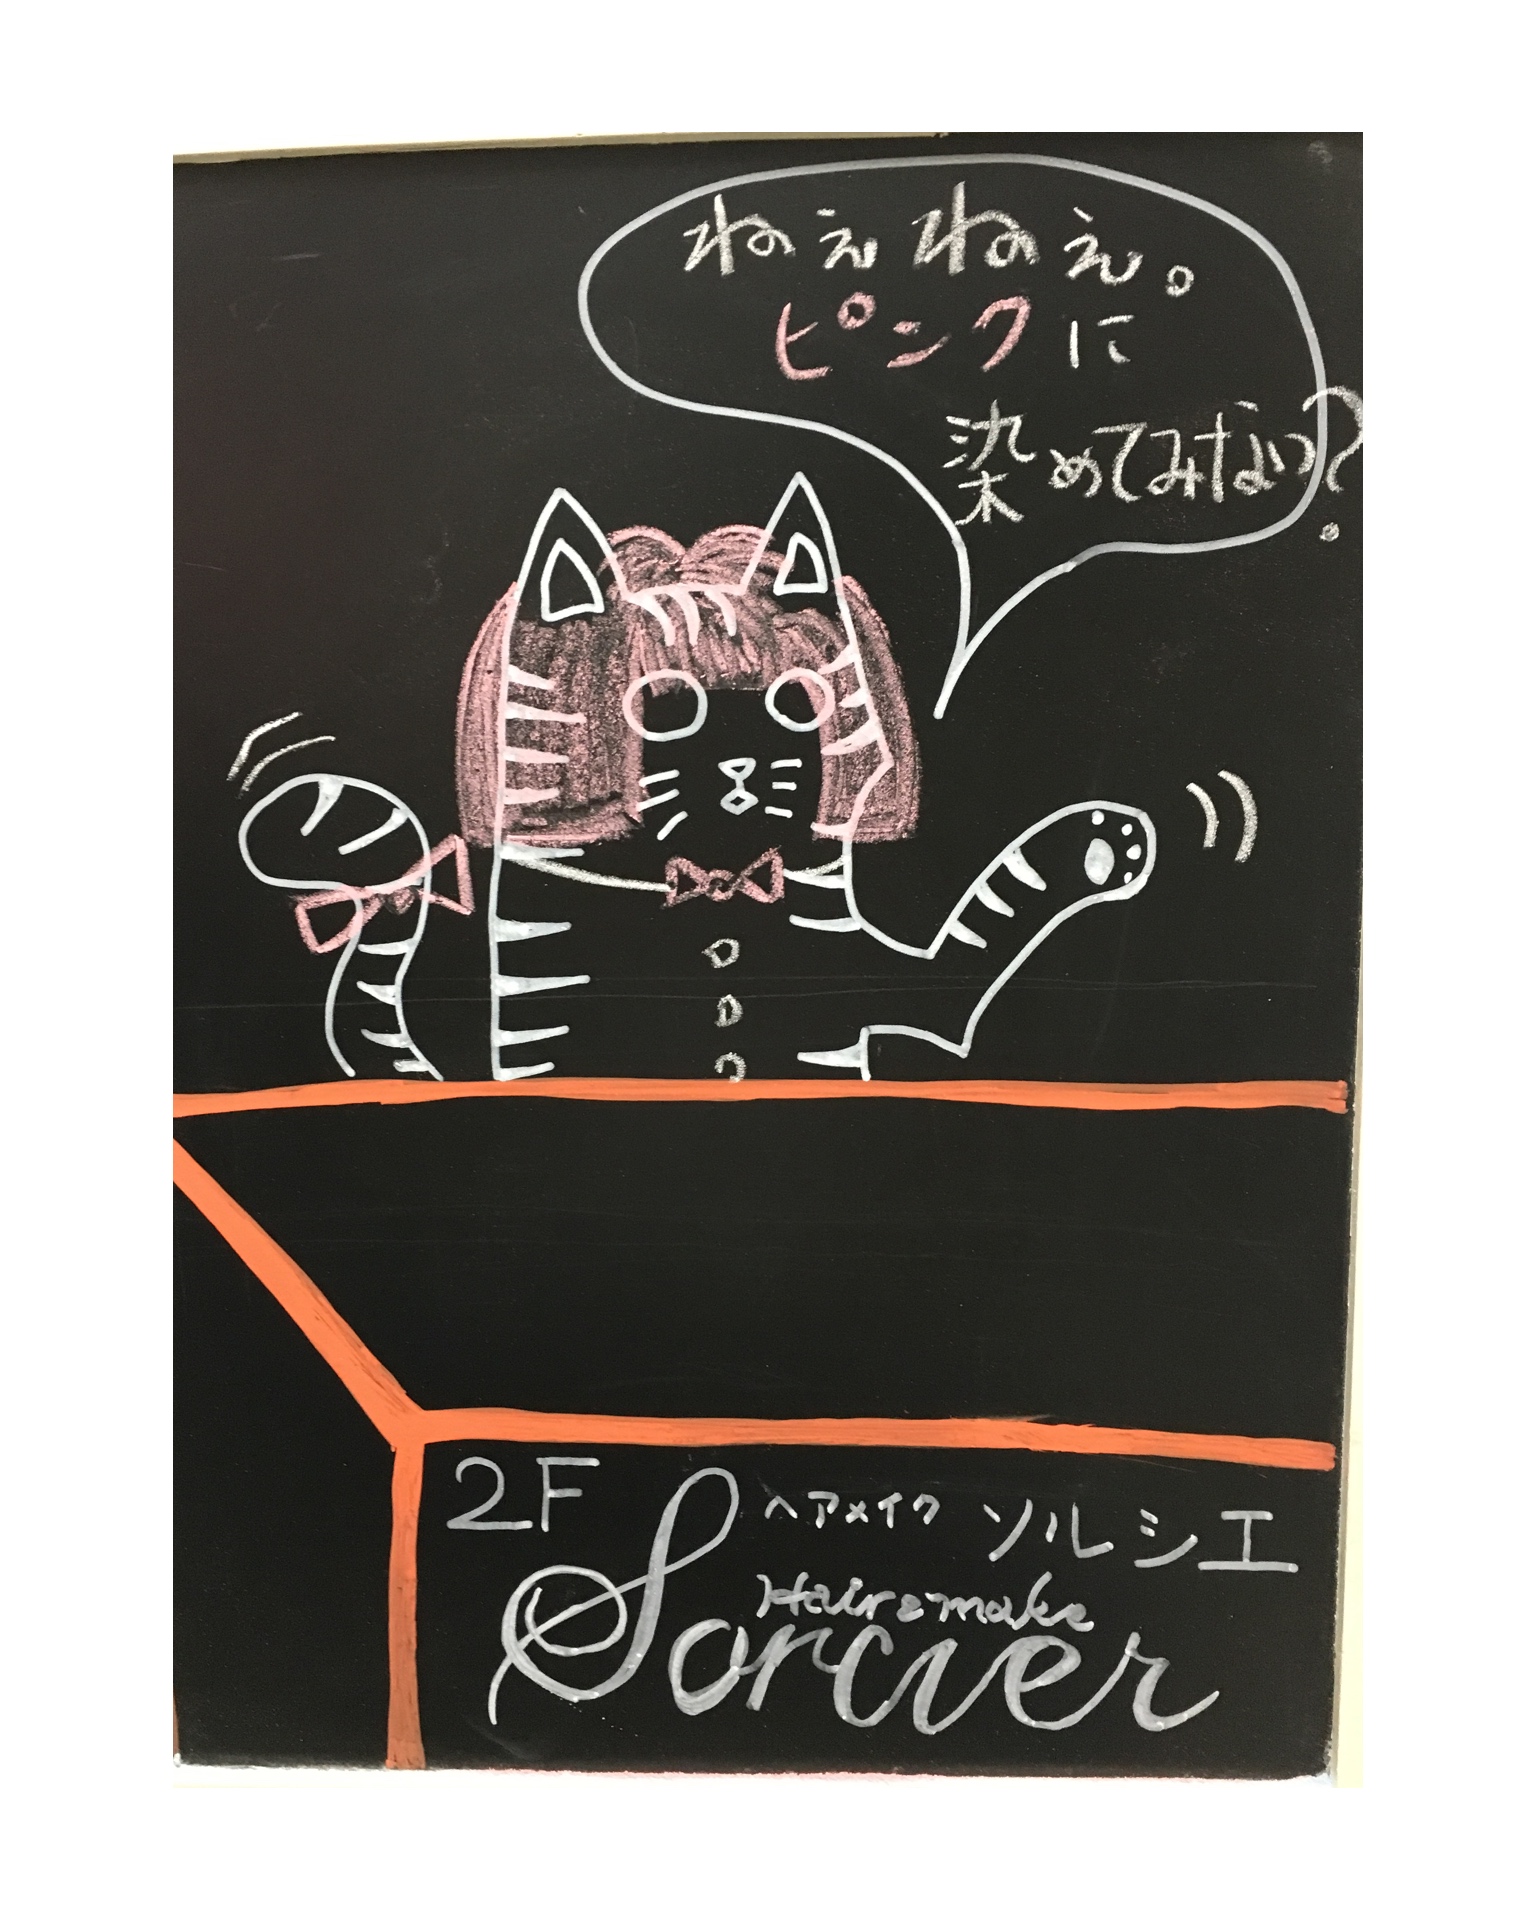 ねぇねぇ。
ピンクに
染めてみない?
2F
ヘアメイク ソルシエ
Hair&make
Sorcier